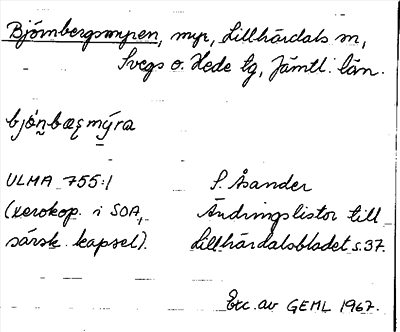 Björnbergsmyren, myr, Lillhärdals sn,
Svegs o. Hede tg, Jämtl. län.
bjó̱n̥bæʂmýra
ULMA 755:1 S. Åsander
(xerokop. i SOA, Ändringslistor till
särsk. kapsel). Lillhärdalsbladet s. 37.
Exc. av GEML 1967.